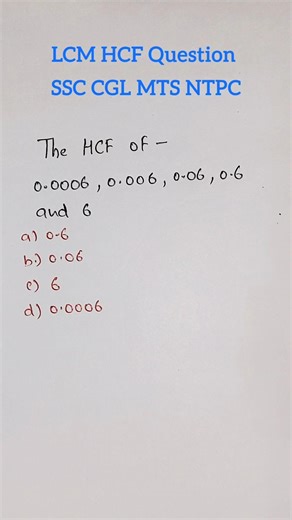 LCM HCF Question
SSC CGL MTS NTPC
The HCF of -
0.0006, 0.006, 0.06, 0.6
and 6
a) 0.6
b.) 0.06
c) 6
d) 0.0006